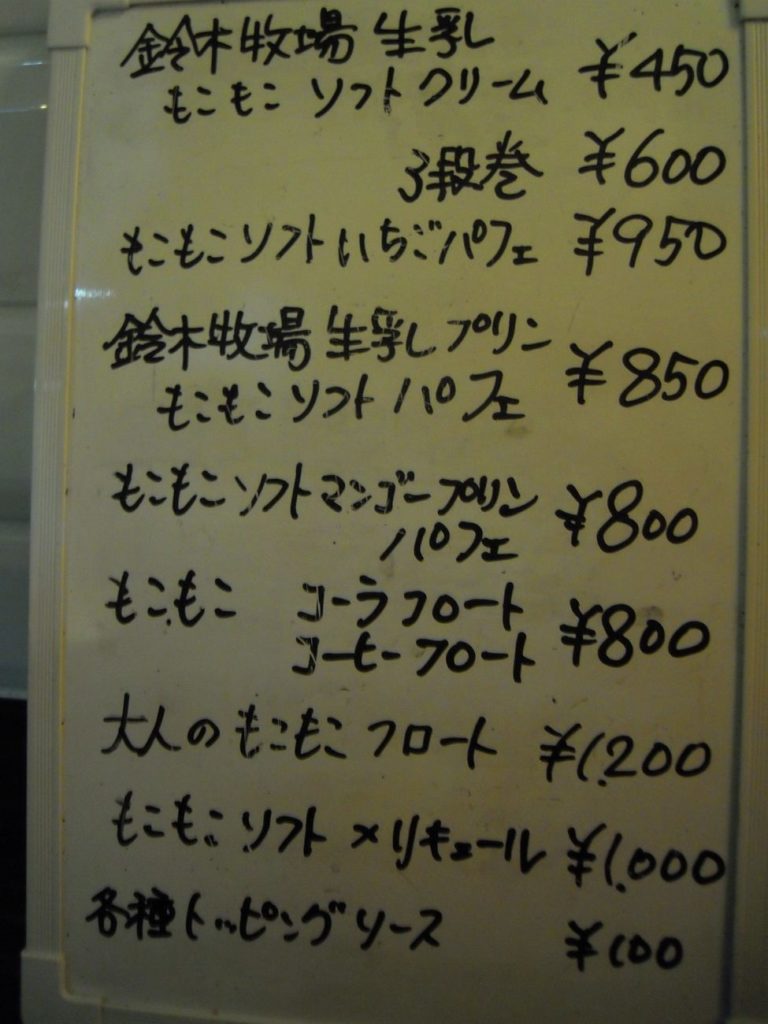 鈴木牧場 生乳
もこもこ ソフトクリーム ¥450
3段巻 ¥600
もこもこソフトいちごパフェ ¥950
鈴木牧場 生乳プリン
もこもこソフトパフェ ¥850
もこもこソフトマンゴープリン
パフェ ¥800
もこもこ コーラフロート
コーヒーフロート ¥800
大人のもこもこフロート ¥1,200
もこもこソフト×リキュール ¥1,000
各種トッピングソース ¥100